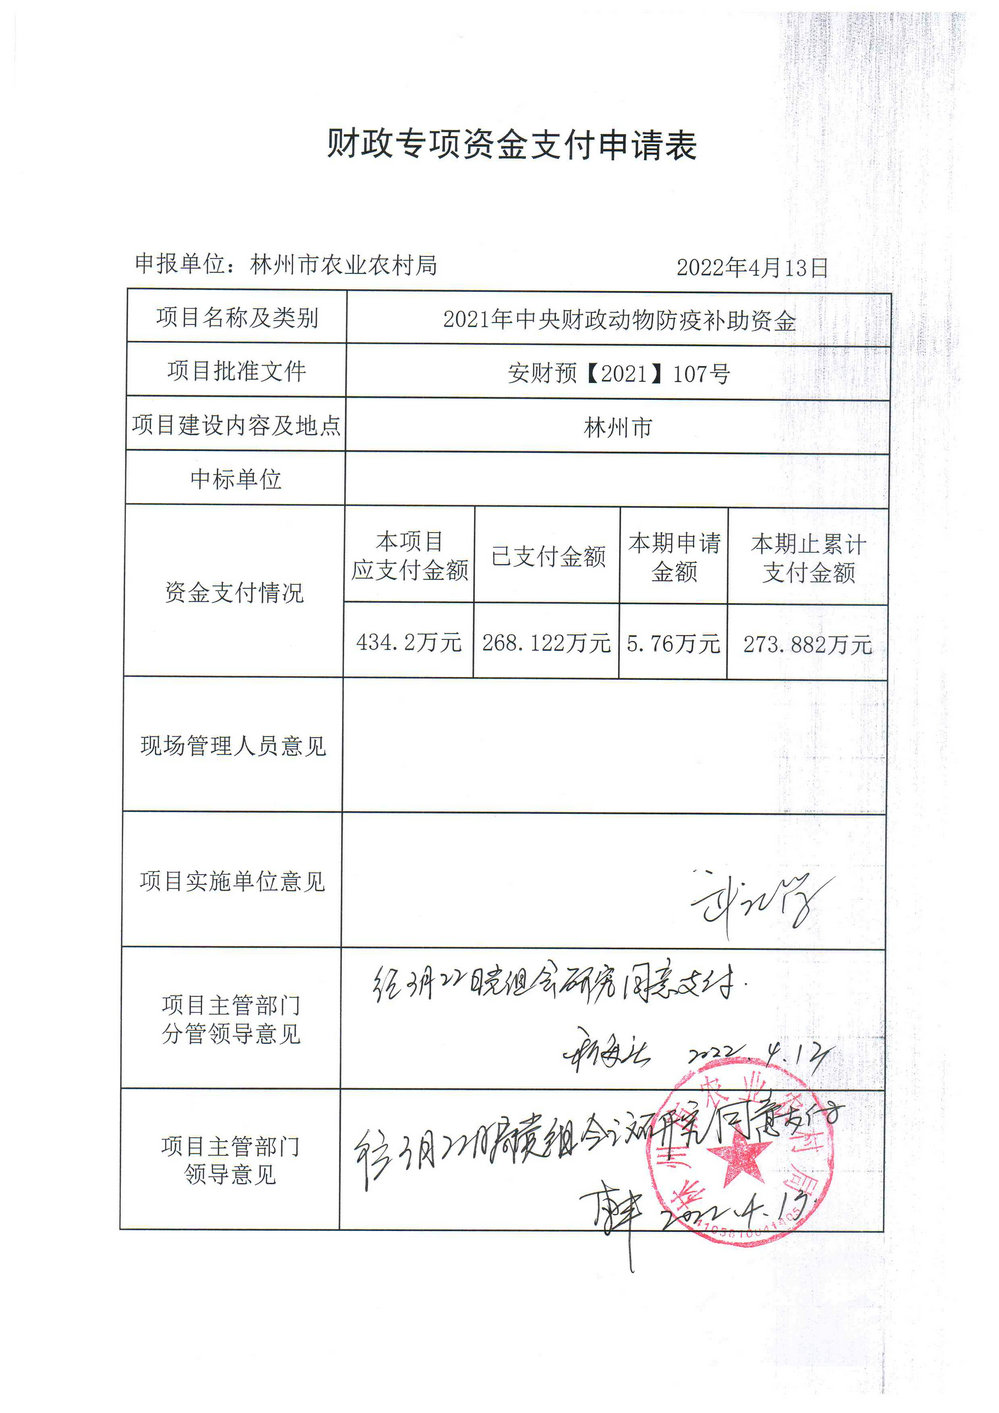 财政专项资金支付申请表
申报单位：林州市农业农村局 2022年4月13日
项目名称及类别 2021年中央财政动物防疫补助资金
项目批准文件 安财预【2021】107号
项目建设内容及地点 林州市
中标单位
资金支付情况
本项目
应支付金额
已支付金额
本期申请
金额
本期止累计
支付金额
434.2万元 268.122万元 5.76万元 273.882万元
现场管理人员意见
项目实施单位意见
项目主管部门
分管领导意见
经3月22日党组会研究同意支付.
2022.4.13
项目主管部门
领导意见
经3月22日局党组会议研究同意支付
2022.4.13
林州市农业农村局